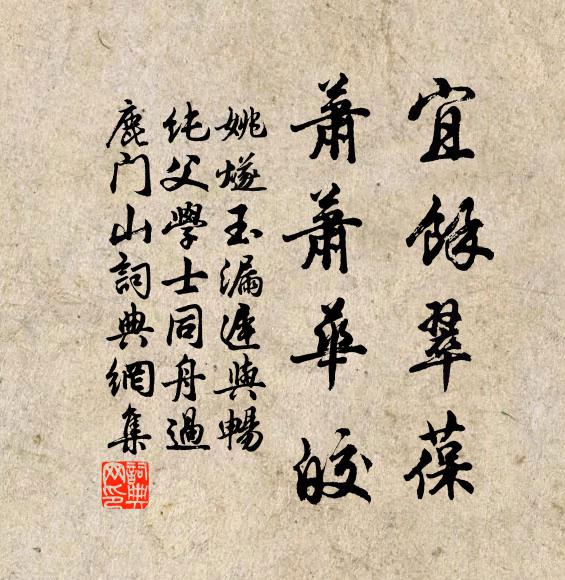 宜餘翠葆
蕭蕭華皎
姚燧玉漏遲與暢
純父學士同舟過
鹿门山詞典網集
詞典网印